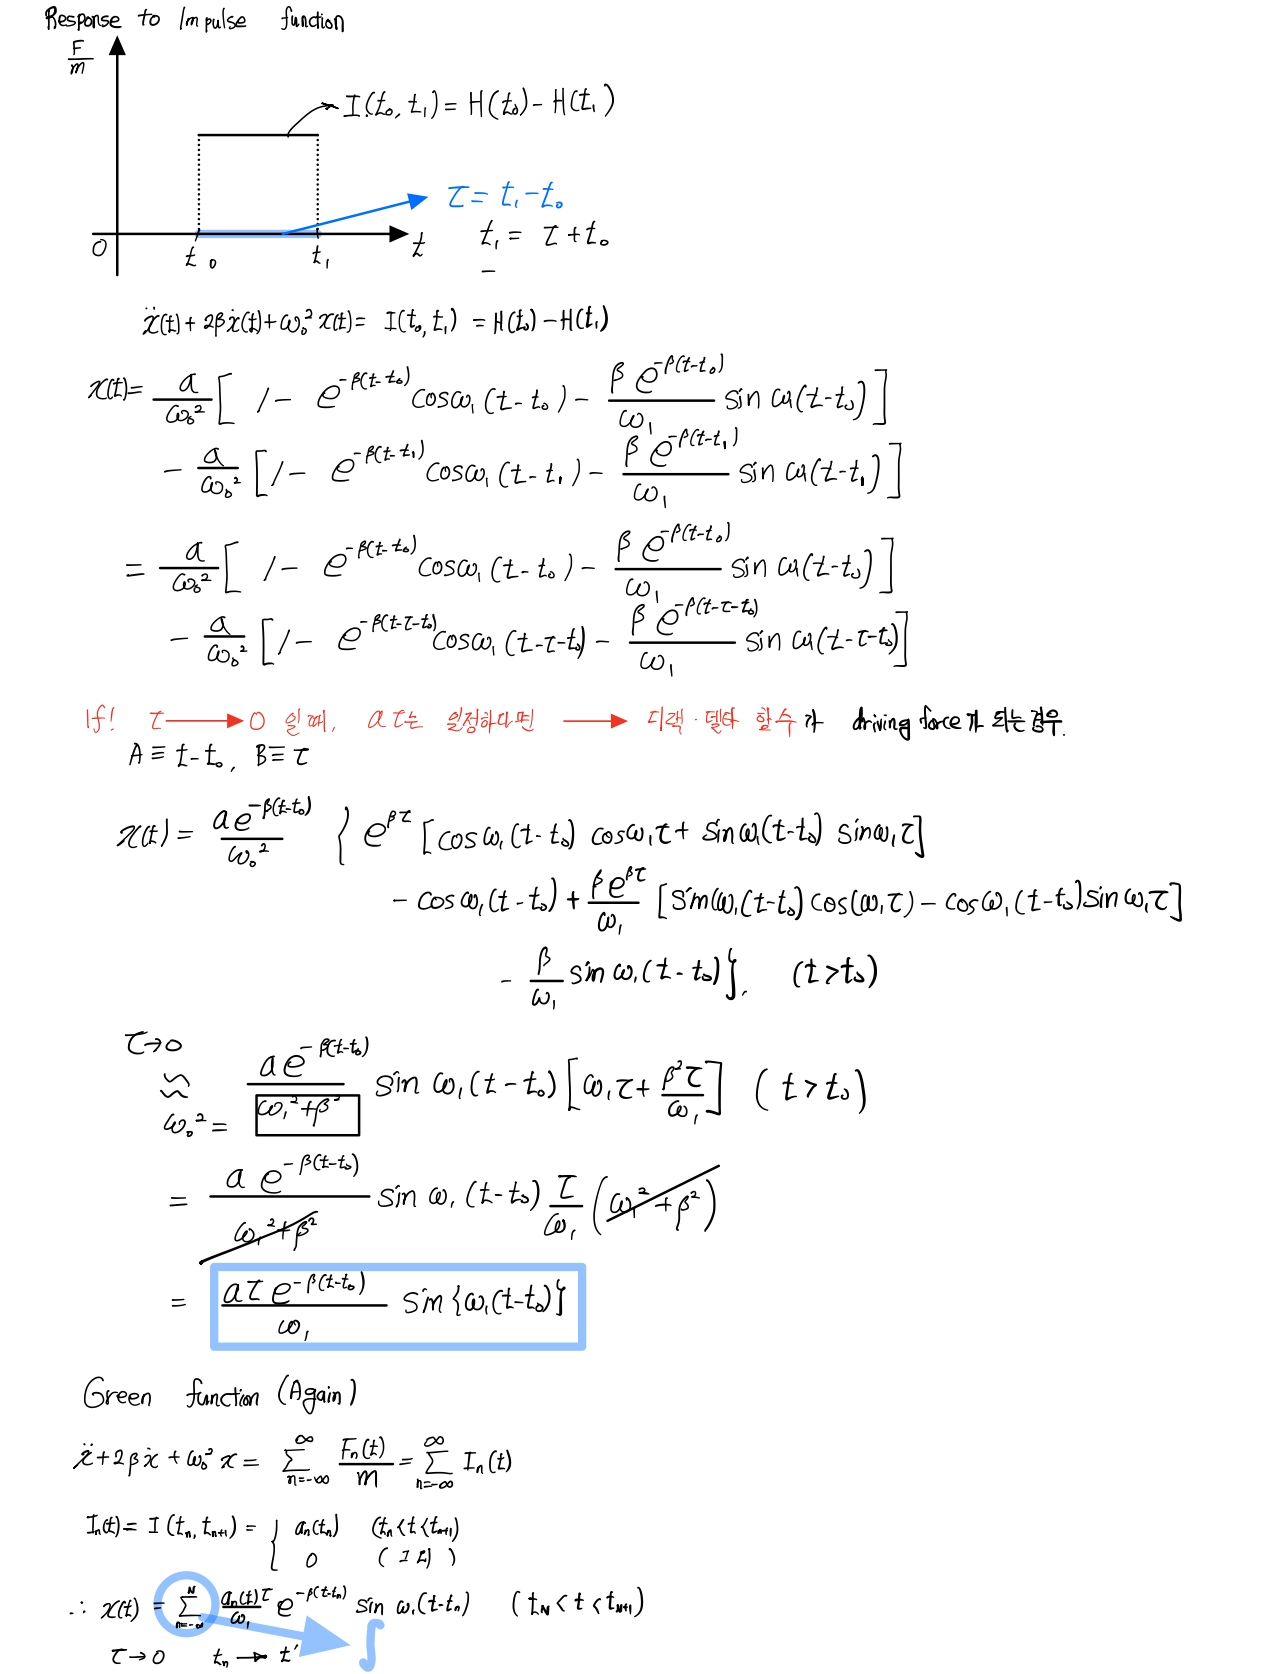 Response to Impulse function
F/m
I(t₀, t₁) = H(t₀) - H(t₁)
τ = t₁ - t₀
t₁ = τ + t₀
0 t₀ t₁ t
ẍ(t) + 2βẋ(t) + ω₀² x(t) = I(t₀, t₁) = H(t₀) - H(t₁)
x(t) = a/ω₀² [ 1 - e^{-β(t-t₀)} cosω₁(t-t₀) - βe^{-β(t-t₀)}/ω₁ sin ω₁(t-t₀) ]
- a/ω₀² [ 1 - e^{-β(t-t₁)} cosω₁(t-t₁) - βe^{-β(t-t₁)}/ω₁ sin ω₁(t-t₁) ]
= a/ω₀² [ 1 - e^{-β(t-t₀)} cosω₁(t-t₀) - βe^{-β(t-t₀)}/ω₁ sin ω₁(t-t₀) ]
- a/ω₀² [ 1 - e^{-β(t-τ-t₀)} cosω₁(t-τ-t₀) - βe^{-β(t-τ-t₀)}/ω₁ sin ω₁(t-τ-t₀) ]
If! τ → 0 일때, aτ는 일정하다면 → 디랙·델타 함수가 driving force가 되는경우.
A ≡ t - t₀, B ≡ τ
x(t) = ae^{-β(t-t₀)}/ω₀² { e^{βτ} [cosω₁(t-t₀) cosω₁τ + sinω₁(t-t₀) sinω₁τ]
- cosω₁(t-t₀) + βe^{βτ}/ω₁ [sin(ω₁(t-t₀) cos(ω₁τ) - cosω₁(t-t₀) sinω₁τ]
- β/ω₁ sin ω₁(t-t₀) }, (t > t₀)
τ→0
≈ ae^{-β(t-t₀)}/(ω₁²+β²) sin ω₁(t-t₀) [ω₁τ + β²τ/ω₁] (t > t₀)
ω₀² =
= ae^{-β(t-t₀)}/(ω₁²+β²) sin ω₁(t-t₀) τ/ω₁ (ω₁²+β²)
= aτe^{-β(t-t₀)}/ω₁ sin{ω₁(t-t₀)}
Green function (Again)
ẍ + 2βẋ + ω₀² x = Σ_{n=-∞}^{∞} Fₙ(t)/m = Σ_{n=-∞}^{∞} Iₙ(t)
Iₙ(t) = I(tₙ, tₙ₊₁) = { aₙ(tₙ) (tₙ < t < tₙ₊₁)
0 (그외)
∴ x(t) = Σ_{n=-∞}^{N} aₙ(t)τ/ω₁ e^{-β(t-tₙ)} sin ω₁(t-tₙ) (t_N < t < t_{N+1})
τ→0 tₙ → t' ∫